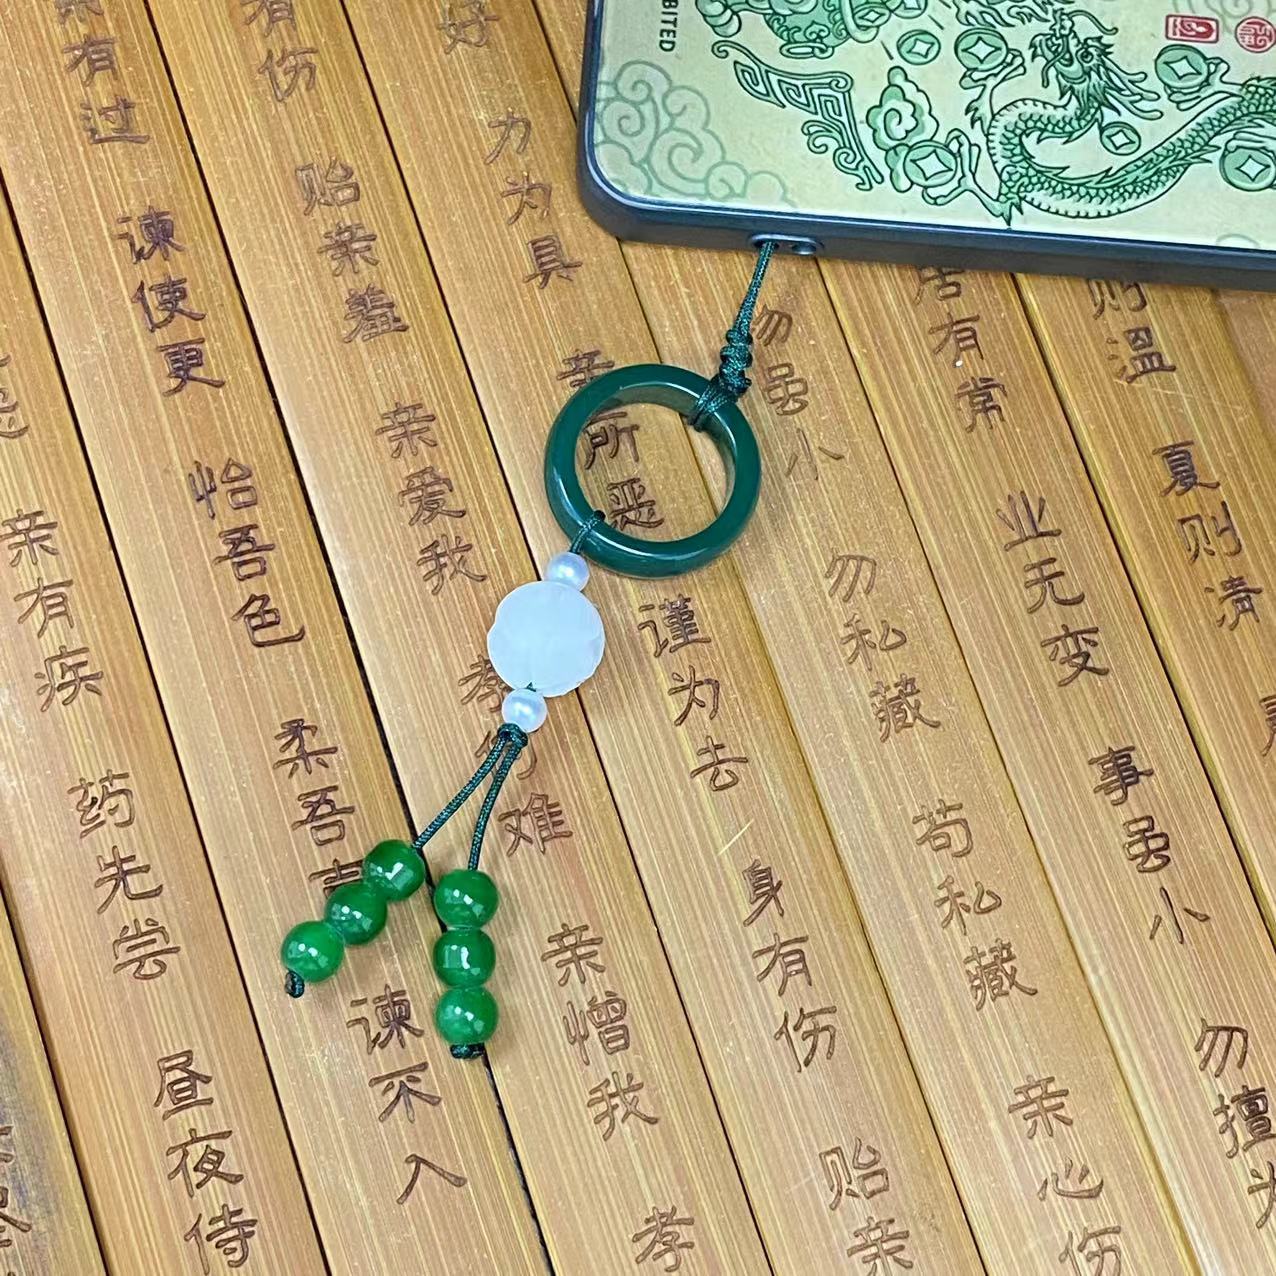 BITED
则溫 夏则清
居有常 业无变 事虽小 勿擅为
虽小 勿私藏 苟私藏 亲心伤
好 力为具 亲所恶 谨为去 身有伤 贻亲
有伤 贻亲羞 亲爱我 孝 难 亲憎我 孝
亲有过 谏使更 怡吾色 柔吾 谏不入
亲有疾 药先尝 昼夜侍